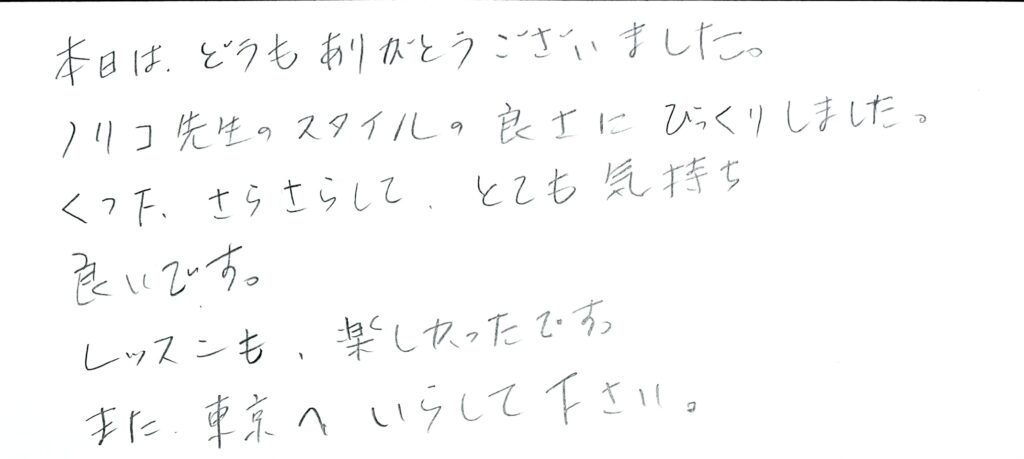 本日は、どうもありがとうございました。
ノリコ先生のスタイルの良さに びっくりしました。
くつ下、さらさらして、とても気持ち
良いです。
レッスンも、楽しかったです。
また、東京へ いらして下さい。